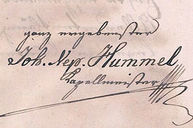 ganz ergebenster
Joh. Nep. Hummel
Capellmeister